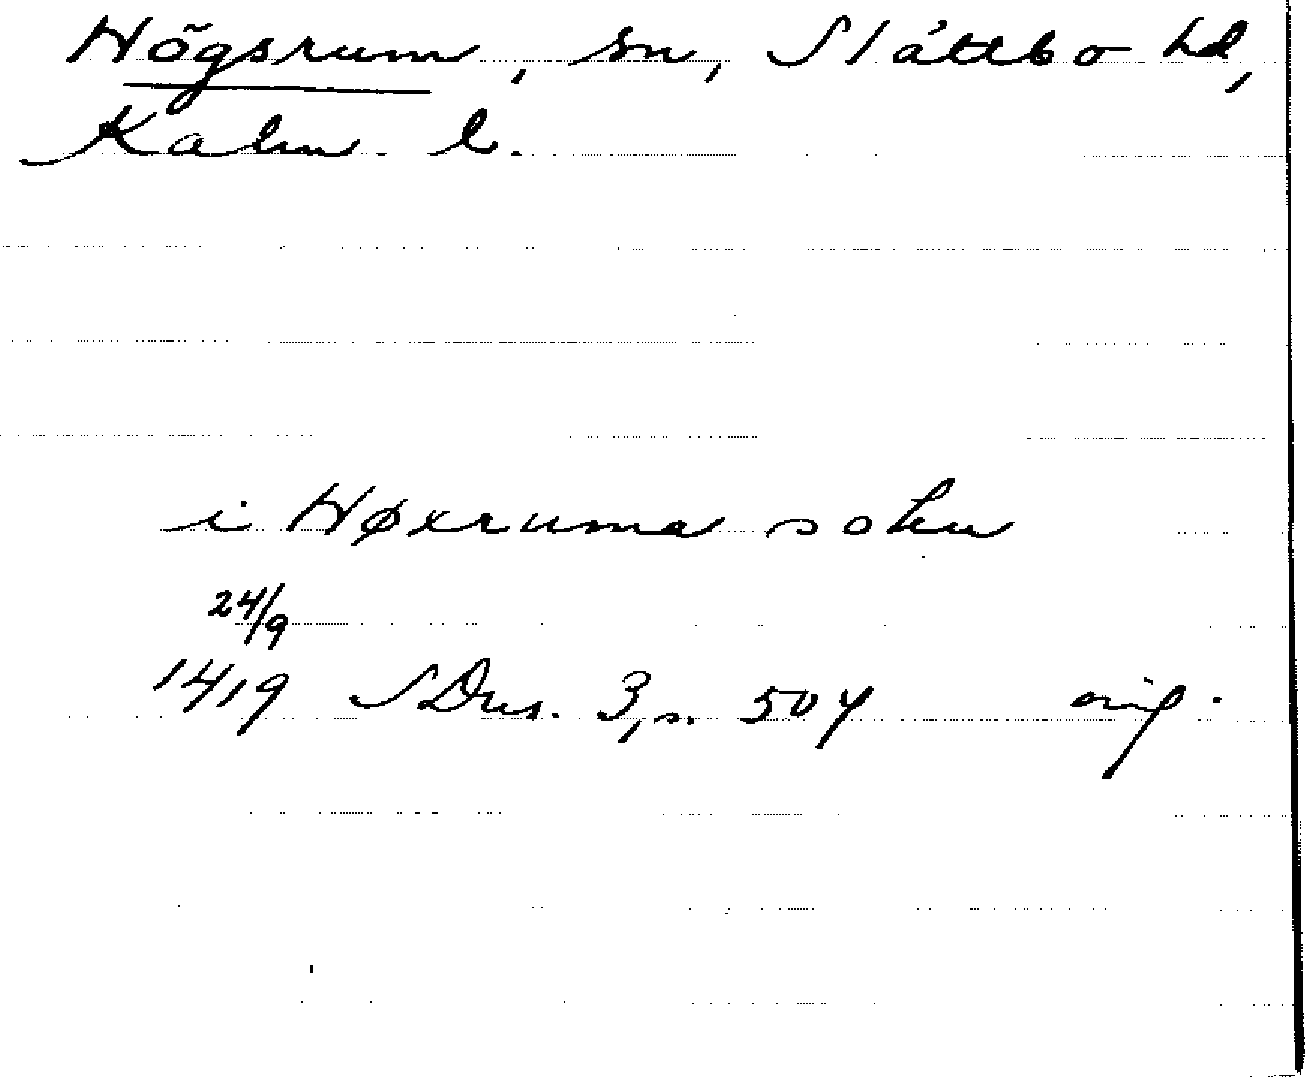 Högsrum, sn, Slättbo hd,
Kalm. l.
i Høxruma sokn
24/9
1419 SDns. 3, s. 504 orig.